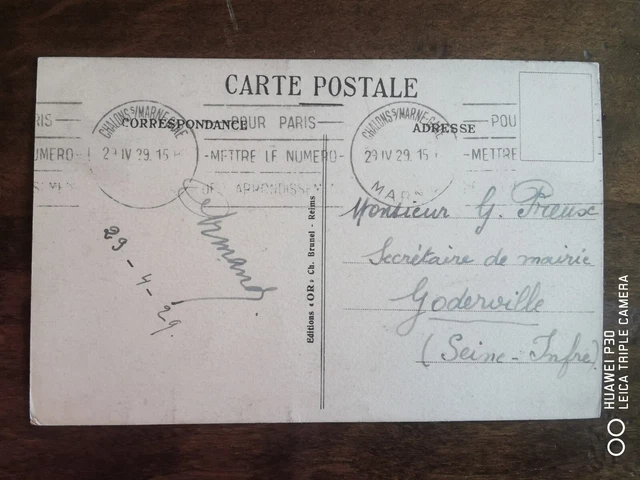 CARTE POSTALE
CORRESPONDANCE
ADRESSE
RIS
CHALONS S/MARNE-GARE
29 IV 29. 15
POUR PARIS
-METTRE LE NUMERO-
DE L'ARRONDISSEM
CHALONS S/MARNE-GARE
29 IV 29. 15
MARNE
POU
METTRE
NUMERO
29-4-29.
Editions «OR» Ch. Brunel - Reims
Monsieur G. Preux
Secrétaire de mairie
Goderville
(Seine-Infre)
HUAWEI P30
LEICA TRIPLE CAMERA